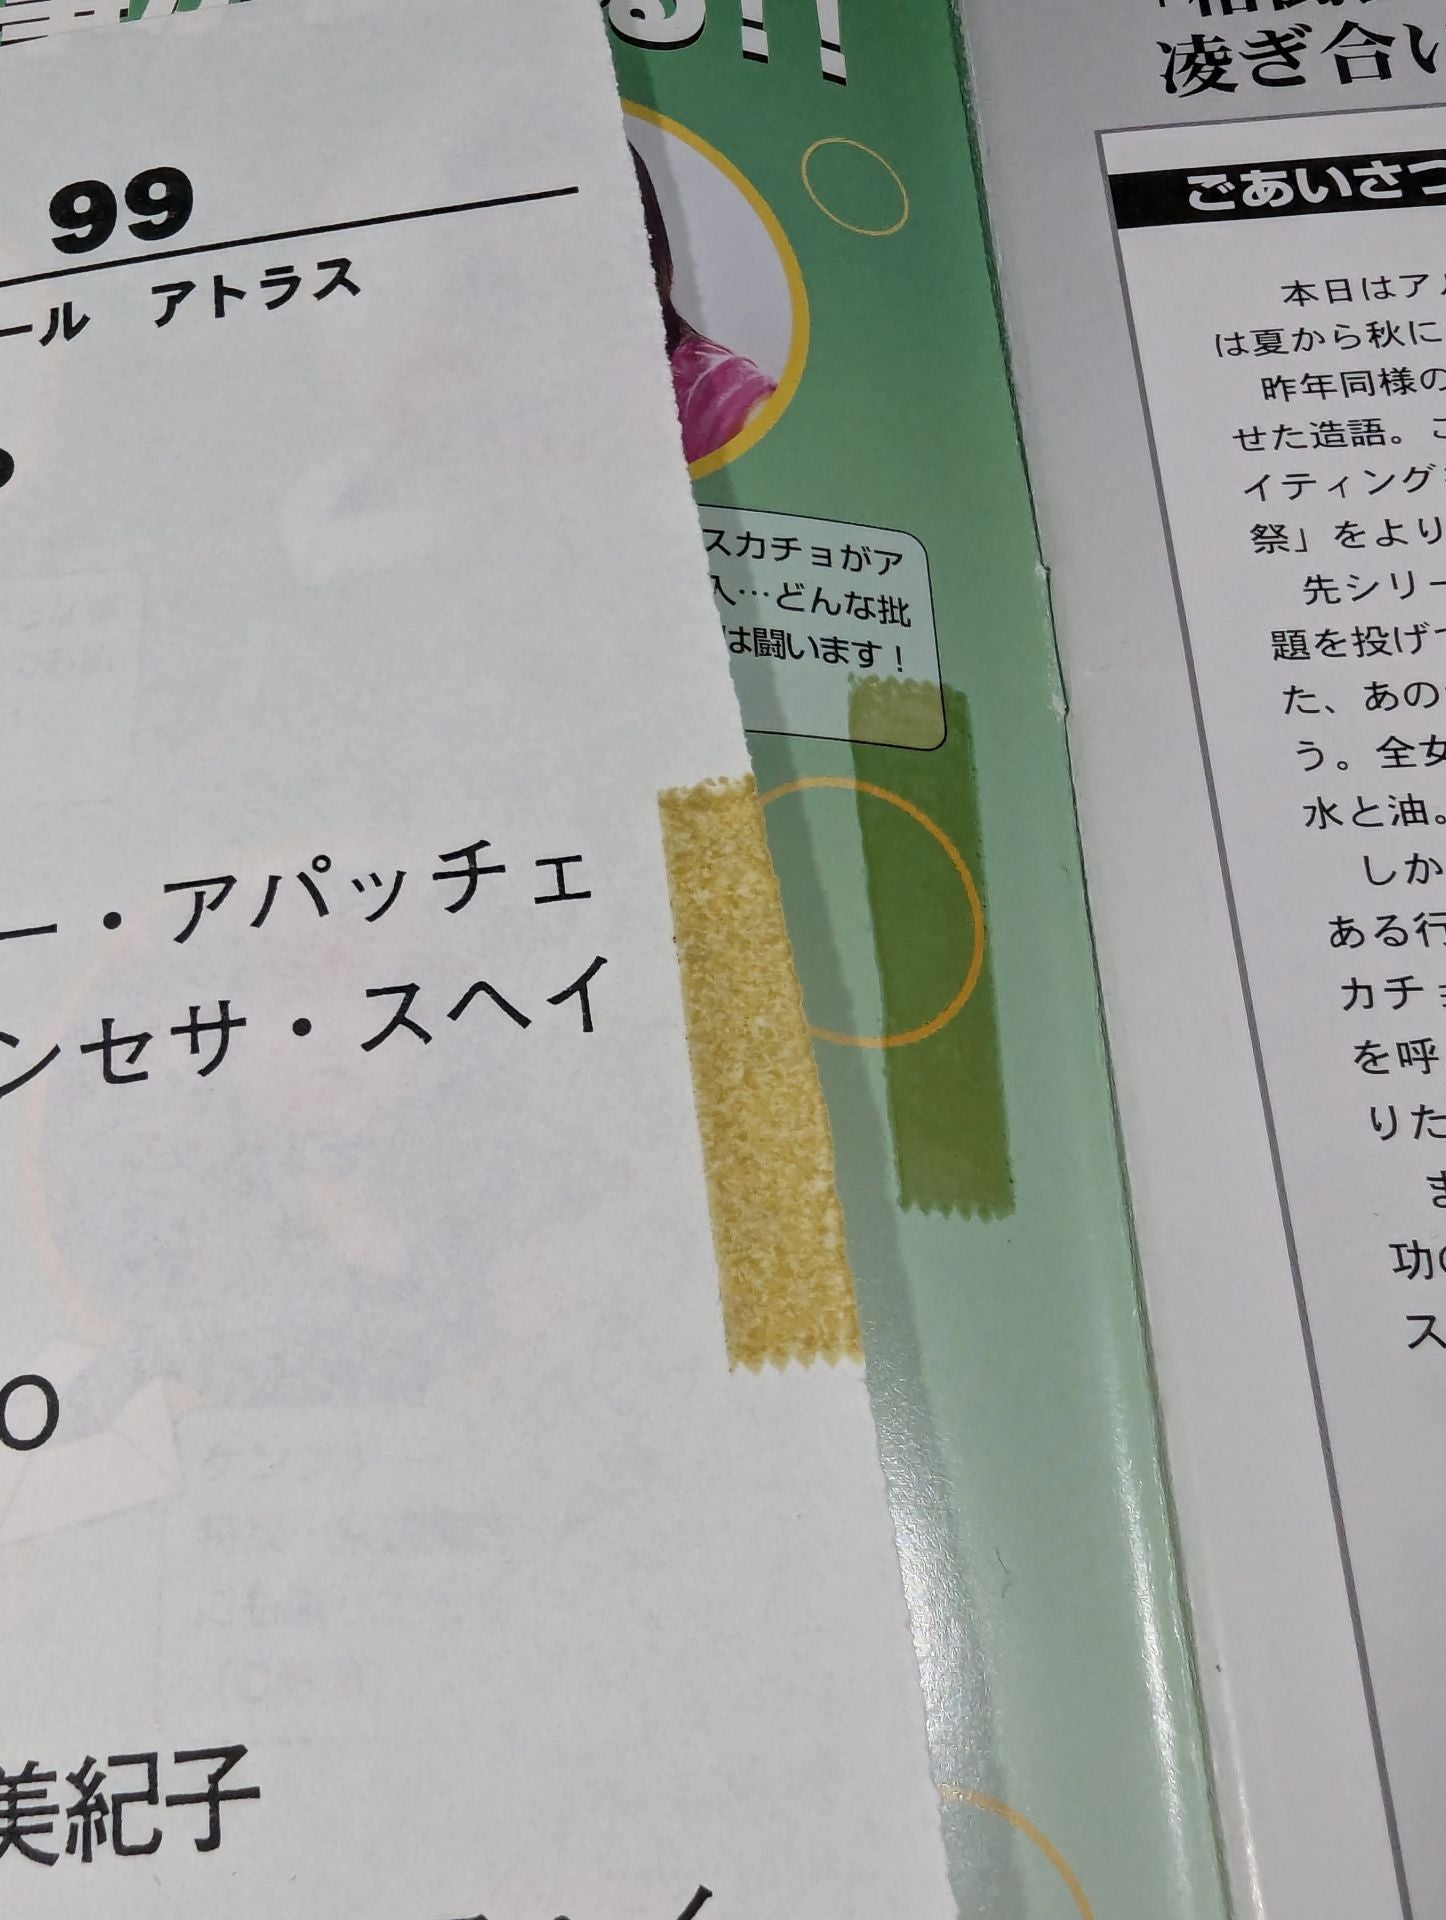 99
ール アトラス
ー・アパッチェ
ンセサ・スヘイ
O
美紀子
る!!
スカチョがア
入…どんな批
は闘います!
凌ぎ合い
ごあいさつ
本日はアル
は夏から秋に
昨年同様の
せた造語。こ
イティング
祭」をより
先シリー
題を投げ
た、あの
う。全女
水と油。
しか
ある行
カチョ
を呼
りた
ま
功の
ス